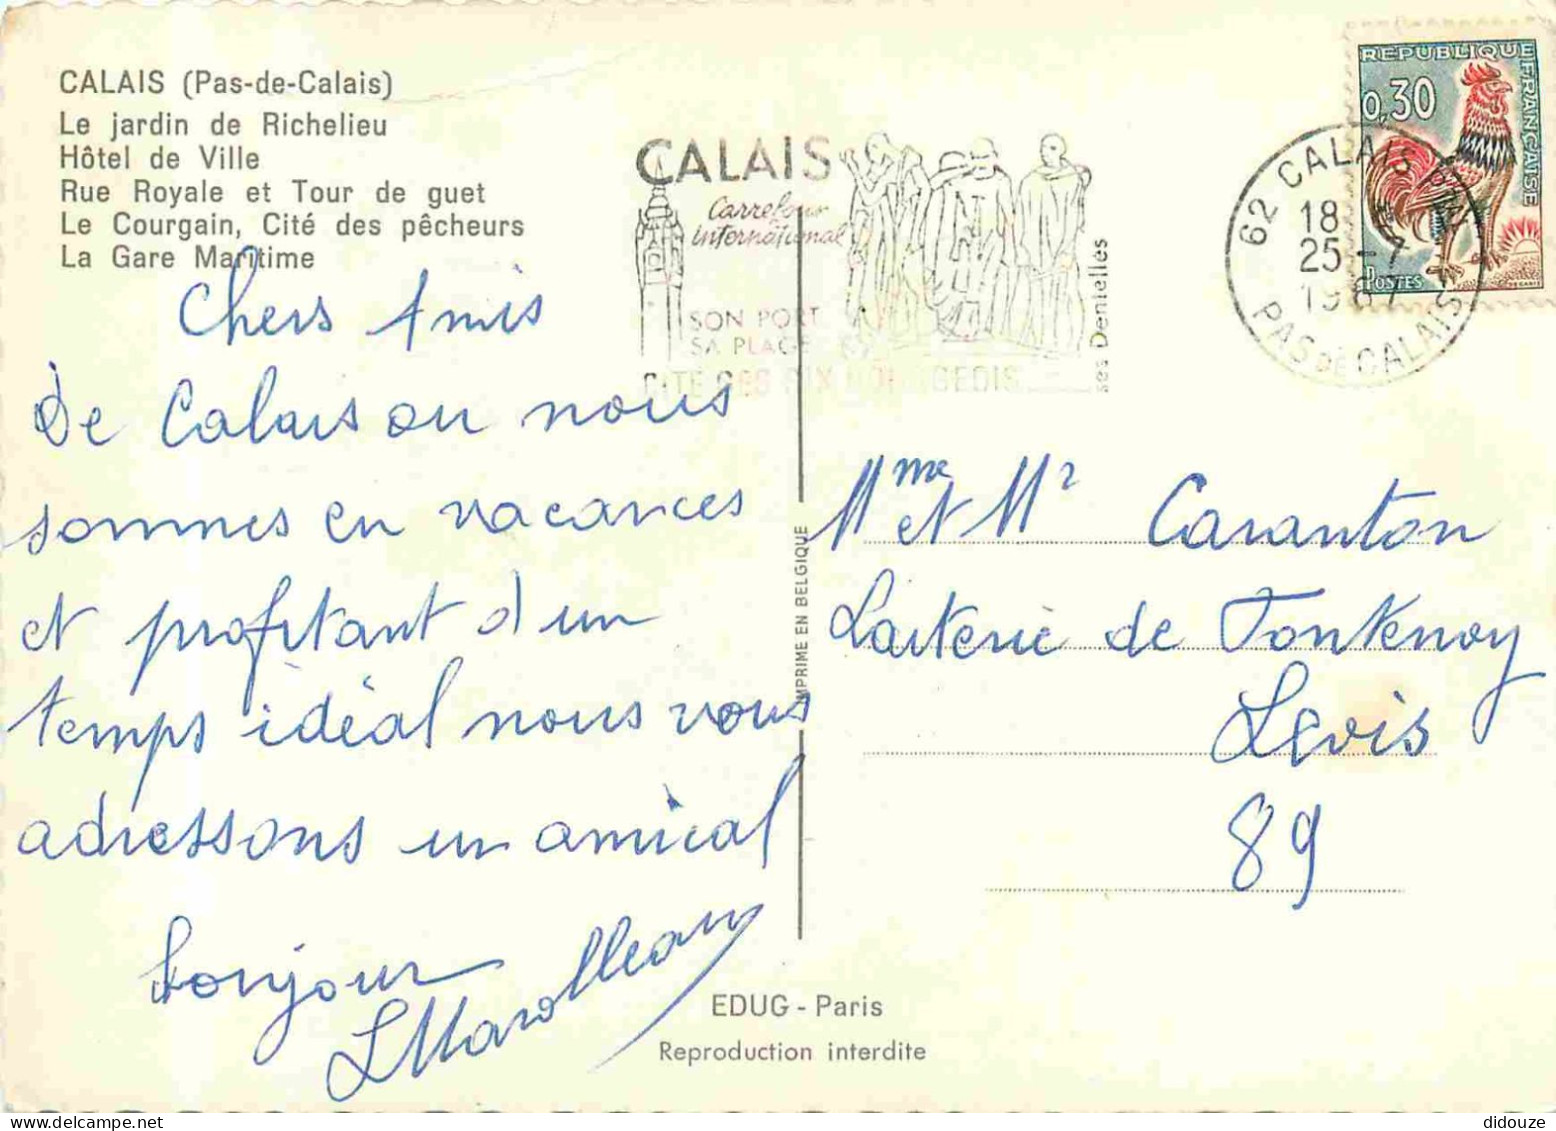 CALAIS (Pas-de-Calais)
Le jardin de Richelieu
Hôtel de Ville
Rue Royale et Tour de guet
Le Courgain, Cité des pêcheurs
La Gare Maritime
CALAIS
Carrefour
international
SON PORT
SA PLAGE
CITE DES SIX BOURGEOIS
ses Dentelles
62 CALAIS
18
25 - 7
1967
PAS DE CALAIS
REPUBLIQUE FRANCAISE
0,30
POSTES
Chers Amis
De Calais ou nous
sommes en vacances
et profitant d'un
temps idéal nous vous
adressons un amical
bonjour
IMPRIME EN BELGIQUE
Mme et Mr Caranton
Laiterie de Fontenoy
Levis
89
EDUG - Paris
Reproduction interdite
didouze